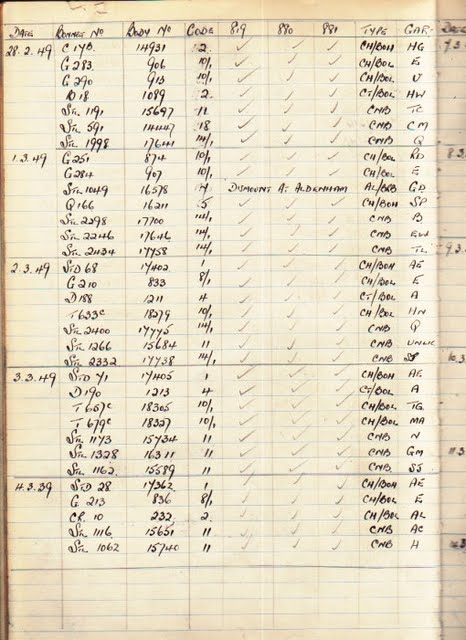 DATE BONNET No BODY No CODE 819 880 881 TYPE GAR.
28.2.49 C178. 14931 2. ✓ ✓ ✓ CH/BOH HG
G 283. 906 10/1 ✓ ✓ ✓ CH/BOL E
G 290 913 10/1 ✓ ✓ ✓ CH/BOL U
D 18 1089 2. ✓ ✓ ✓ CT/BOL HW
STL 1191 15697 11 ✓ ✓ ✓ CNB TC
STL 591 14447 18 ✓ ✓ ✓ CNB CM
STL 1998 17641 14/1 ✓ ✓ ✓ CNB Q
1.3.49 G 251 874 10/1 ✓ ✓ ✓ CH/BOL RD
G 284 907 10/1 ✓ ✓ ✓ CH/BOL E
STL 1049 16578 DISMOUNT AT ALDENHAM GD
Q 166 16211 5 ✓ ✓ ✓ CH/BOH SP
STL 2298 17700 14/1 ✓ ✓ ✓ CNB B
STL 2246 17646 14/1 ✓ ✓ ✓ CNB EW
STL 2434 17758 14/1 ✓ ✓ ✓ CNB TL
2.3.49 STD 68 17402 1 ✓ ✓ ✓ CH/BOH AE
G 210 833 8/1 ✓ ✓ ✓ CH/BOL E
D 188 1211 4 ✓ ✓ ✓ CT/BOL A
T 633c 18279 10/1 ✓ ✓ ✓ CH/BOL HN
STL 2400 17775 14/1 ✓ ✓ ✓ CNB Q
STL 1266 15684 11 ✓ ✓ ✓ CNB UNLIC
STL 2332 17738 14/1 ✓ ✓ ✓ CNB
3.3.49 STD 71 17405 1 ✓ ✓ ✓ CH/BOH AE
D 190 1213 4 ✓ ✓ ✓ CT/BOL A
T 657c 18305 10/1 ✓ ✓ ✓ CH/BOL TG
T 679c 18327 10/1 ✓ ✓ ✓ CH/BOL MA
STL 1173 15734 11 ✓ ✓ ✓ CNB N
STL 1328 16311 11 ✓ ✓ ✓ CNB GM
STL 1162 15589 11 ✓ ✓ ✓ CNB SJ
4.3.39 STD 28 17362 1 ✓ ✓ ✓ CH/BOH AE
G 213 836 8/1 ✓ ✓ ✓ CH/BOL E
CR. 10 232 2. ✓ ✓ ✓ CH/BOL AL
STL 1116 15651 11 ✓ ✓ ✓ CNB AC
STL 1062 15740 11 ✓ ✓ ✓ CNB H